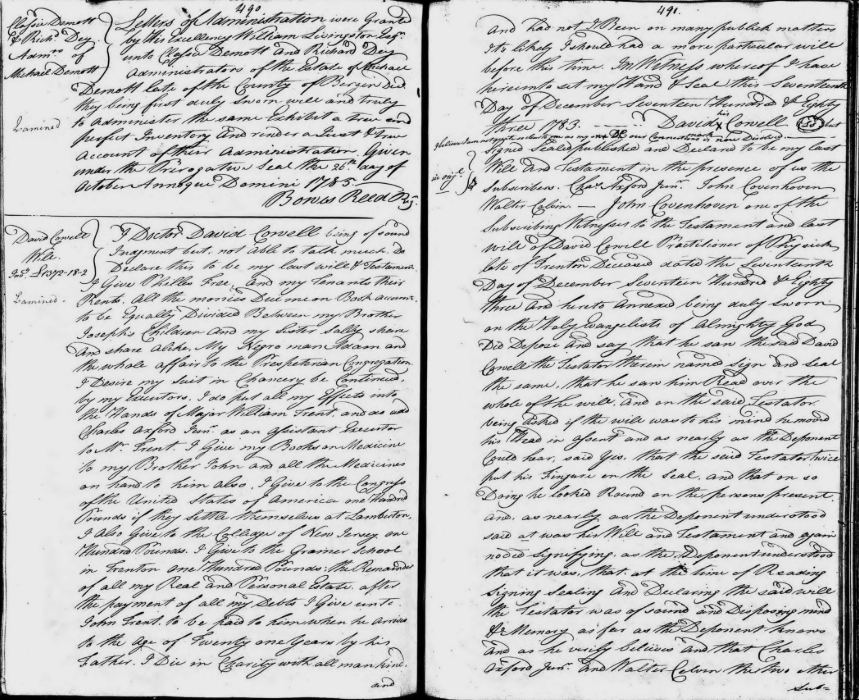 490.
Closfie Demott
& Richd Dey
Admrs of
Michael Demott
Examined
Letters of Administration were Granted
by His Excellency William Livingston Esqr
unto Closfie Demott and Richard Dey
Administrators of the Estate of Michael
Demott late of the County of Bergen Decd
they being first duly Sworn well and truly
to administer the same Exhibit a true and
perfect Inventory and render a Just & true
Account of their Administration. Given
under the Prerogative Seal the 26th day of
October Annoque Domini 1785
Bowes Reed Regr
David Cowell
Will
Examined.
I Doctor David Cowell being of sound
Judgment but not able to talk much. Do
Declare this to be my last will & Testament
I Give Phillis Free, and my tenants their
Rents. All the monies Due me on Book account
to be Equally Divided Between my Brother
Josephs Children and my Sister Sally share
and share alike. My Negro man Adam and
the whole affair to the Presbyterian Congregation
I Desire my Suit in Chancery be Continued,
by my Executors, I do put all my Effects into
the Hands of Major William Trent, and do add
Charles Axford Junr. as an assistant Executor
to Mr. Trent. I Give my Books on Medicine
to my Brother John and all the Medicines
on hand to him also. I Give to the Congress
of the United States of America one Hundred
Pounds if they settle themselves at Lamberton.
I Also Give to the College of New Jersey one
Hundred Pounds. I Give to the Gramer School
in Trenton one Hundred Pounds. the Remainder
of all my Real and Personal Estate, after
the payment of all my Debts I Give unto
John Trent, to be paid to him when he arrives
to the Age of Twenty one Years by his
Father. I Die in Charity with all mankind.
and
491.
and had not I Been on many publick matters
Its likely I should had a more particular will
before this time. In Witness whereof I have
hereunto set my Hand & Seal this Seventeenth
Day of December Seventeen Hundred & Eighty
three 1783. David his X mark Cowell
in origl
Signed Sealed published and Declared to be my last
Will and Testament in the presence of us the
Subscribers. Chas Axford Junr. John Covenhoven
Walter Colvin. — John Covenhoven one of the
Subscribing Witnesses to the Testament and last
will of David Cowell Practitioner of Physick
late of Trenton Deceased dated the Seventeenth
Day of December Seventeen Hundred & Eighty
three and hereto Annexed being duly Sworn
on the Holy Evangelists of Almighty God
Did Depose and say that he saw the said David
Cowell the Testator therein named sign and seal
the same, that he saw him Read over the
whole of the will, and on the said Testator
being asked if the will was to his mind he moved
his Head in assent and as nearly as the Deponent
Could hear, said Yes. that the said Testator twice
put his Fingure on the Seal, and that on so
Doing he looked Round on the persons present
and, as nearly as the Deponent understood
said it was his Will and Testament and again
noded signifying, as the Deponent understood
that it was, that at the time of Reading
Signing Sealing and Declaring the said will
the Testator was of sound and Disposing mind
& Memory as far as the Deponent knows
and as he verily believes and that Charles
Axford Junr. and Walter Colvin the two other
Sub=